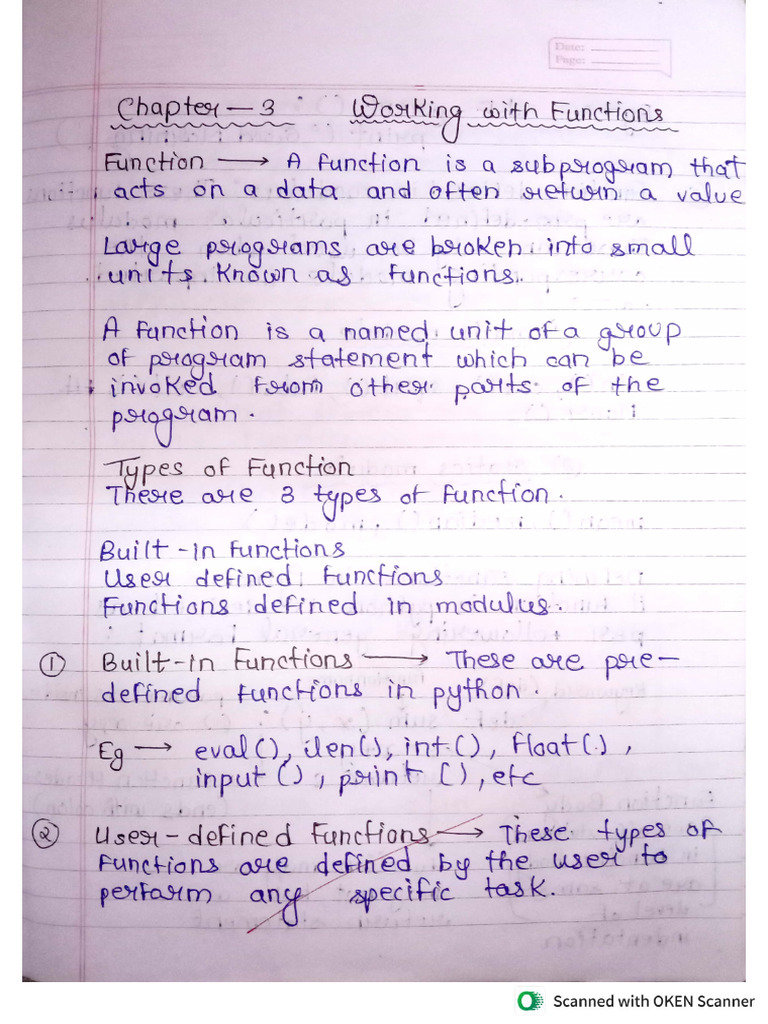 Date:
Page:
Chapter - 3 Working with Functions
Function → A function is a subprogram that
acts on a data and often return a value
Large programs are broken into small
units known as functions.
A function is a named unit of a group
of program statement which can be
invoked from other parts of the
program.
Types of Function
There are 3 types of function.
Built-in functions
User defined functions
Functions defined in modulus.
① Built-in Functions → These are pre-
defined functions in python.
Eg → eval(), len(), int(), float(),
input(), print(), etc
② User-defined Functions → These types of
functions are defined by the user to
perform any specific task.
Scanned with OKEN Scanner